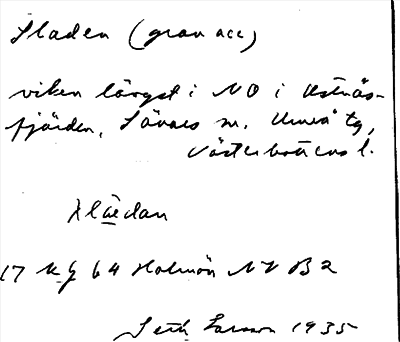 Sladen (grav acc)
viken längst i NO i Östnäs-
fjärden, Sävars sn. Umeå tg,
Västerbottens l.
Slädan
17 Kg 64 Holmön NV B2
Seth Larsson 1935